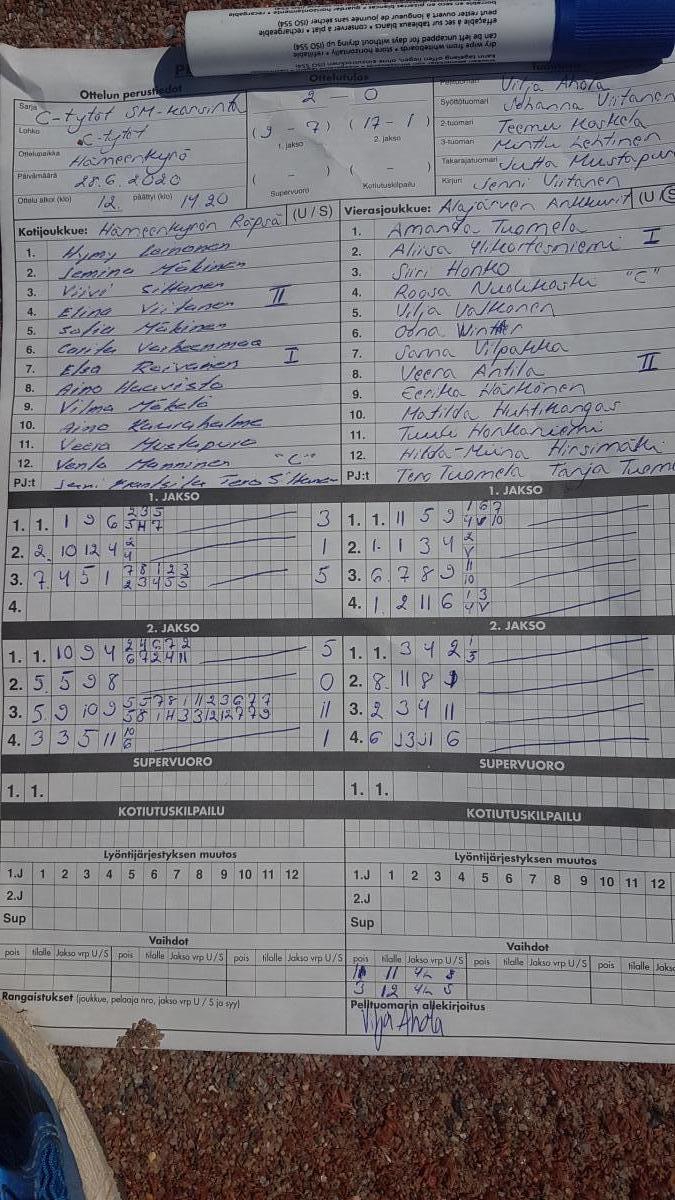 peut rester ouvert à longueur de journée sans sécher (ISO 554)
effaçable à sec sur tableaux blancs • conserver à plat • rechargeable
can be left uncapped for days without drying up (ISO 554)
dry wipe from whiteboards • store horizontally • refillable
Ottelun perustiedot
Ottelutulos
Sarja C-tytöt SM-karsinta
Lohko C-tytöt
Ottelupaikka Hämeenkyrö
Päivämäärä 28.6.2020
Ottelu alkoi (klo) 12. päättyi (klo) 14.20
2 - 0
(9 - 7) (17 - 1)
1. jakso 2. jakso
( - ) ( - )
Supervuoro Kotiutuskilpailu
Pelituomari Vilja Ahola
Syöttötuomari Johanna Viitanen
2-tuomari Teemu Koskela
3-tuomari Minttu Lehtinen
Takarajatuomari Jutta Mustapuro
Kirjuri Jenni Viitanen
Kotijoukkue: Hämeenkyrön Räpsä (U / S)
1. Hymy
2. Jemina Mäkinen
3. Viivi Siltanen
4. Elina Viitanen II
5. Sofia Mäkinen
6.
7. Elsa Roivainen I
8. Aino Haavisto
9. Vilma Mäkelä
10. Aino
11. Veera Mustapuro
12. Venla Manninen "C"
PJ:t
Vierasjoukkue: Alajärven Ankkurit (U / S
1. Amanda Tuomela
2. Aliisa Ylikortesniemi I
3. Siiri Honko
4. Roosa "C"
5. Vilja Valkonen
6. Oona
7. Sanna Vilpakka
8. Veera Antila II
9. Eerika Härkönen
10. Matilda Huhtikangas
11. Tuuli Honkaniemi
12. Hilda-Miina Hirsimäki
PJ:t Tero Tuomela Tanja Tuom
1. JAKSO
1. 1. 1 9 6 2 3 5 3
5 4 7
2. 2. 10 12 4 2 1
4
3. 7 4 5 1 7 8 1 2 3 5
2 3 4 5 5
4.
1. JAKSO
1. 1. 11 5 9 1 6 7
4 V 10
2. 1. 1 3 4 2
V
3. 6. 7 8 9 11
10
4. 1 2 11 6 1 3
4 V
2. JAKSO
1. 1. 10 9 4 2 4 6 7 2 5
6 7 2 4 11
2. 5. 5 9 8 0
3. 5. 9 10 9 5 5 7 8 1 11 2 3 6 7 7 11
5 8 1 4 3 3 12 12 7 7 9
4. 3 3 5 11 10 1
6
2. JAKSO
1. 1. 3 4 2 1
3
2. 8. 11 8
3. 2 3 4 11
4. 6
SUPERVUORO
1. 1.
SUPERVUORO
1. 1.
KOTIUTUSKILPAILU
KOTIUTUSKILPAILU
Lyöntijärjestyksen muutos
1.J 1 2 3 4 5 6 7 8 9 10 11 12
2.J
Sup
Lyöntijärjestyksen muutos
1.J 1 2 3 4 5 6 7 8 9 10 11 12
2.J
Sup
Vaihdot
pois tilalle Jakso vrp U / S pois tilalle Jakso vrp U / S pois tilalle Jakso vrp U / S
Vaihdot
pois tilalle Jakso vrp U / S pois tilalle Jakso vrp U / S pois tilalle Jakso
11
3 12
Rangaistukset (joukkue, pelaaja nro, jakso vrp U / S ja syy)
Pelituomarin allekirjoitus
Vilja Ahola